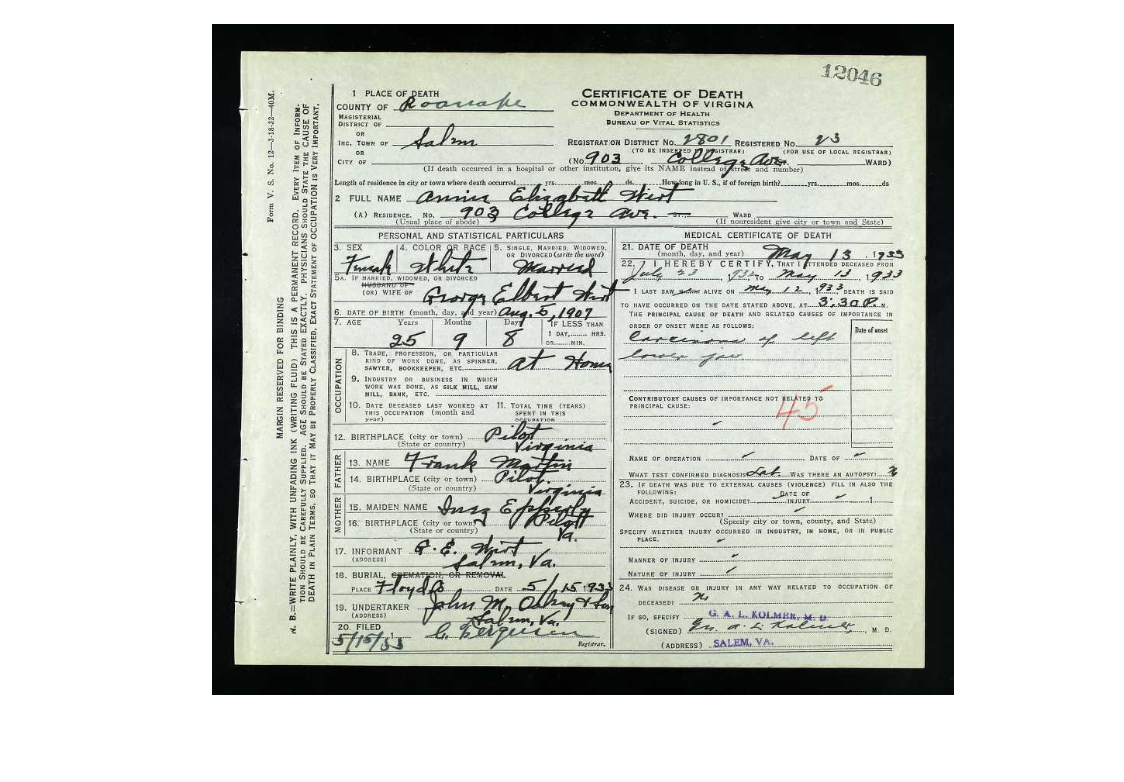 12046
Form V. S. No. 12—3-18-32—40M.
MARGIN RESERVED FOR BINDING
N. B.—WRITE PLAINLY, WITH UNFADING INK (WRITING FLUID) THIS IS A PERMANENT RECORD. EVERY ITEM OF INFORMA-
TION SHOULD BE CAREFULLY SUPPLIED. AGE SHOULD BE STATED EXACTLY. PHYSICIANS SHOULD STATE THE CAUSE OF
DEATH IN PLAIN TERMS, SO THAT IT MAY BE PROPERLY CLASSIFIED. EXACT STATEMENT OF OCCUPATION IS VERY IMPORTANT.
CERTIFICATE OF DEATH
COMMONWEALTH OF VIRGINIA
DEPARTMENT OF HEALTH
BUREAU OF VITAL STATISTICS
1 PLACE OF DEATH
COUNTY OF Roanoke
MAGISTERIAL
DISTRICT OF
OR
INC. TOWN OF Salem
OR
CITY OF
REGISTRATION DISTRICT NO. 2801 REGISTERED NO. 23
(TO BE INSERTED BY REGISTRAR) (FOR USE OF LOCAL REGISTRAR)
(No. 903 College Ave. WARD)
(If death occurred in a hospital or other institution, give its NAME instead of street and number)
Length of residence in city or town where death occurred yrs. mos. ds. How long in U. S., if of foreign birth? yrs. mos. ds
2 FULL NAME Annie Elizabeth Wirt
(A) RESIDENCE. No. 903 College Ave. ST. WARD
(Usual place of abode) (If nonresident give city or town and State)
PERSONAL AND STATISTICAL PARTICULARS
3. SEX 4. COLOR OR RACE 5. SINGLE, MARRIED, WIDOWED,
OR DIVORCED (write the word)
Female White Married
5A. IF MARRIED, WIDOWED, OR DIVORCED
HUSBAND OF
(OR) WIFE OF George Elbert Wirt
6. DATE OF BIRTH (month, day, and year) Aug. 5, 1907
7. AGE Years Months Days IF LESS THAN
1 DAY, HRS.
OR MIN.
25 9 8
OCCUPATION
8. TRADE, PROFESSION, OR PARTICULAR
KIND OF WORK DONE, AS SPINNER,
SAWYER, BOOKKEEPER, ETC. at Home
9. INDUSTRY OR BUSINESS IN WHICH
WORK WAS DONE, AS SILK MILL, SAW
MILL, BANK, ETC.
10. DATE DECEASED LAST WORKED AT 11. TOTAL TIME (YEARS)
THIS OCCUPATION (month and SPENT IN THIS
year) OCCUPATION
12. BIRTHPLACE (city or town) Pilot
(State or country) Virginia
FATHER
13. NAME Frank Martin
14. BIRTHPLACE (city or town) Pilot
(State or country) Virginia
MOTHER
15. MAIDEN NAME Inez Epperly
16. BIRTHPLACE (city or town) Pilot
(State or country) Va.
17. INFORMANT G. E. Wirt
(ADDRESS) Salem, Va.
18. BURIAL, CREMATION, OR REMOVAL
PLACE Floyd Co DATE 5/15 1933
19. UNDERTAKER John M. Oakey & Son
(ADDRESS) Salem, Va.
20. FILED
5/15/33 Ferguson
Registrar.
MEDICAL CERTIFICATE OF DEATH
21. DATE OF DEATH
(month, day, and year) May 13, 1933
22. I HEREBY CERTIFY, THAT I ATTENDED DECEASED FROM
July 23 1932, TO May 13, 1933
I LAST SAW ALIVE ON May 12, 1933, DEATH IS SAID
TO HAVE OCCURRED ON THE DATE STATED ABOVE, AT 3:30 P. M.
THE PRINCIPAL CAUSE OF DEATH AND RELATED CAUSES OF IMPORTANCE IN
ORDER OF ONSET WERE AS FOLLOWS: Date of onset
Carcinoma of left
lower jaw
CONTRIBUTORY CAUSES OF IMPORTANCE NOT RELATED TO
PRINCIPAL CAUSE:
45
NAME OF OPERATION DATE OF
WHAT TEST CONFIRMED DIAGNOSIS Lab. WAS THERE AN AUTOPSY?
23. IF DEATH WAS DUE TO EXTERNAL CAUSES (VIOLENCE) FILL IN ALSO THE
FOLLOWING:
ACCIDENT, SUICIDE, OR HOMICIDE? DATE OF INJURY 1
WHERE DID INJURY OCCUR?
(Specify city or town, county, and State)
SPECIFY WHETHER INJURY OCCURRED IN INDUSTRY, IN HOME, OR IN PUBLIC
PLACE.
MANNER OF INJURY
NATURE OF INJURY
24. WAS DISEASE OR INJURY IN ANY WAY RELATED TO OCCUPATION OF
DECEASED? No
IF SO, SPECIFY G. A. L. KOLMER, M. D.
(SIGNED) G. A. L. Kolmer, M. D.
(ADDRESS) SALEM, VA.